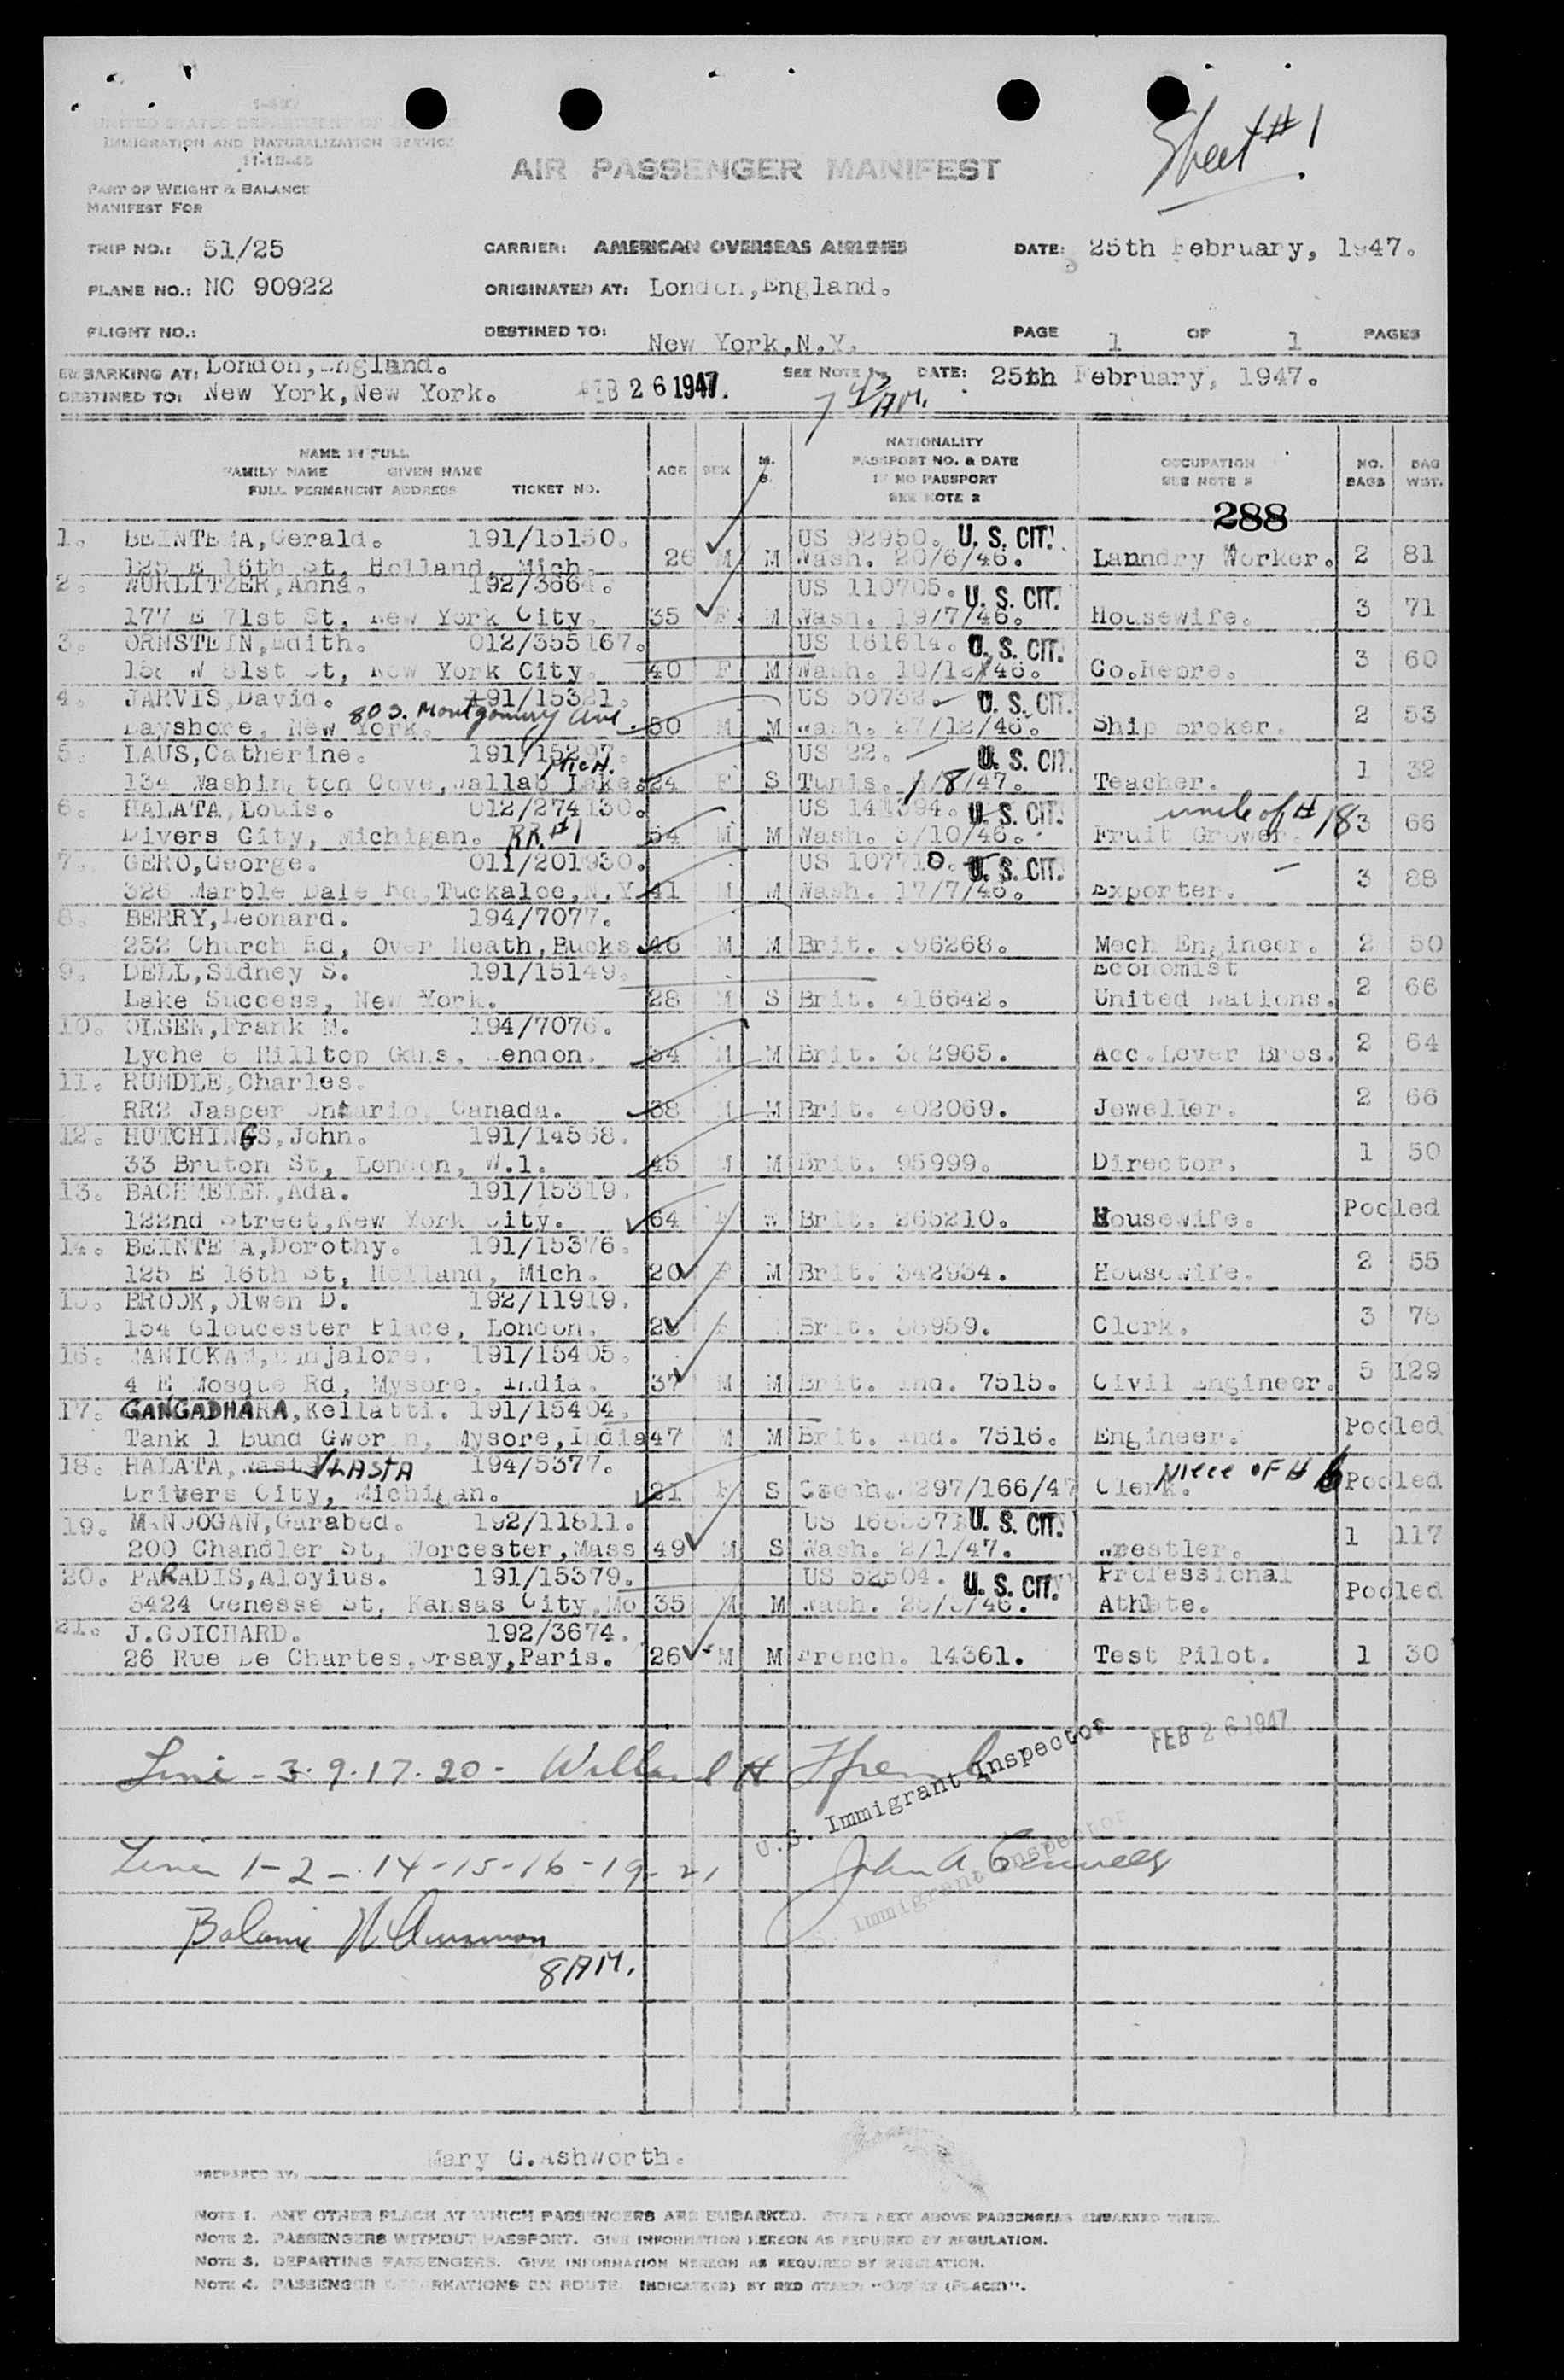 Sheet #1
I-437
UNITED STATES DEPARTMENT OF
IMMIGRATION AND NATURALIZATION SERVICE
11-15-45
AIR PASSENGER MANIFEST
PART OF WEIGHT & BALANCE
MANIFEST FOR
TRIP NO.: 51/25 CARRIER: AMERICAN OVERSEAS AIRLINES DATE: 25th February, 1947.
PLANE NO.: NC 90922 ORIGINATED AT: London,England.
FLIGHT NO.: DESTINED TO: New York,N.Y. PAGE 1 OF 1 PAGES
EMBARKING AT: London,England. SEE NOTE 1 DATE: 25th February, 1947.
DESTINED TO: New York,New York. FEB 26 1947. 7 43 AM.
NAME IN FULL
FAMILY NAME GIVEN NAME
FULL PERMANENT ADDRESS TICKET NO. AGE SEX M. S. NATIONALITY PASSPORT NO. & DATE IF NO PASSPORT SEE NOTE 2 OCCUPATION SEE NOTE 3 NO. BAGS BAG WGT.
288
1. BEINTEMA,Gerald. 191/15150. US 92950. U. S. CIT.
125 E 16th St, Holland, Mich. 26 M M Wash. 20/6/46. Lanndry Worker. 2 81
2. WURLITZER,Anna. 192/3664. US 110705. U. S. CIT.
177 E 71st St, New York City. 35 F M Wash. 19/7/46. Housewife. 3 71
3. ORNSTEIN,Edith. 012/355167. US 161614. U. S. CIT.
W 81st St, New York City. 40 F M Wash. 10/12/46. Co.Repre. 3 60
4. JARVIS,David. 191/15321. US 50732. U. S. CIT.
Bayshore, New York. 80 S. Montgomery Ave 50 M M Wash. 27/12/46. Ship Broker. 2 53
5. LAUS,Catherine. 191/15297. US 22. U. S. CIT.
134 Washington Cove,Wallab Lake. Mich. 24 F S Tunis. 1/8/47. Teacher. 1 32
6. HALATA,Louis. 012/274130. US 141394. U. S. CIT. uncle of # 18
Divers City, Michigan. RR#1 54 M M Wash. 3/10/46. Fruit Grower. 3 66
7. GERO,George. 011/201930. US 107710. U. S. CIT.
326 Marble Dale Rd,Tuckaloe,N.Y 41 M M Wash. 17/7/46. Exporter. 3 88
8. BERRY,Leonard. 194/7077.
252 Church Rd, Over Heath,Bucks 46 M M Brit. 396268. Mech Engineer. 2 50
9. DELL,Sidney S. 191/15149. Economist
Lake Success, New York. 28 M S Brit. 416642. United Nations. 2 66
10. OLSEN,Frank M. 194/7076.
Lyche 8 Hilltop Gdns, London. 34 M M Brit. 382965. Acc.Lever Bros. 2 64
11. RUNDLE,Charles.
RR2 Jasper Ontario, Canada. 38 M M Brit. 402069. Jeweller. 2 66
12. HUTCHINGS,John. 191/14568.
33 Bruton St, London, W.1. 45 M M Brit. 95999. Director. 1 50
13. BACHMEIER,Ada. 191/15319.
122nd Street,New York City. 64 F W Brit. 265210. Housewife. Pooled
14. BEINTEMA,Dorothy. 191/15376.
125 E 16th St, Holland, Mich. 20 F M Brit. 342934. Housewife. 2 55
15. BROOK,Olwen D. 192/11919.
154 Gloucester Place, London. Brit. Clerk. 3 78
16. MANICKAM, 191/15405.
4 E Mosque Rd, Mysore, India. 37 M M Brit. Ind. 7515. Civil Engineer. 5 129
17. GANGADHARA,Kellatti. 191/15404.
Tank 1 Bund Mysore,India 47 M M Brit. Ind. 7516. Engineer. Pooled
18. HALATA, VLASTA 194/5377. Niece of # 6
Drivers City, Michigan. 21 F S Czech. 297/166/47 Clerk. Pooled
19. MANOOGAN,Garabed. 192/11811. US U. S. CIT.
200 Chandler St, Worcester,Mass 49 M S Wash. 2/1/47. Wrestler. 1 117
20. PARADIS,Aloyius. 191/15379. US 52504. U. S. CIT. Professional
3424 Genesse St, Kansas City,Mo 35 M M Wash. Athlete. Pooled
21. J.GUICHARD. 192/3674.
26 Rue De Chartes,Orsay,Paris. 26 M M French. 14361. Test Pilot. 1 30
Line - 3. 9. 17. 20 - Willard H
U.S. Immigrant Inspector FEB 26 1947
Lines 1-2-14-15-16-19-21 John A
Immigrant Inspector
Balance
8 AM.
PREPARED BY: Mary G.Ashworth.
NOTE 1. ANY OTHER PLACE AT WHICH PASSENGERS ARE EMBARKED. STATE NEXT ABOVE PASSENGERS EMBARKED THERE.
NOTE 2. PASSENGERS WITHOUT PASSPORT. GIVE INFORMATION HEREON AS REQUIRED BY REGULATION.
NOTE 3. DEPARTING PASSENGERS. GIVE INFORMATION HEREON AS REQUIRED BY REGULATION.
NOTE 4. PASSENGER DEBARKATIONS EN ROUTE. INDICATE(D) BY RED STAMP "OFF AT (PLACE)".